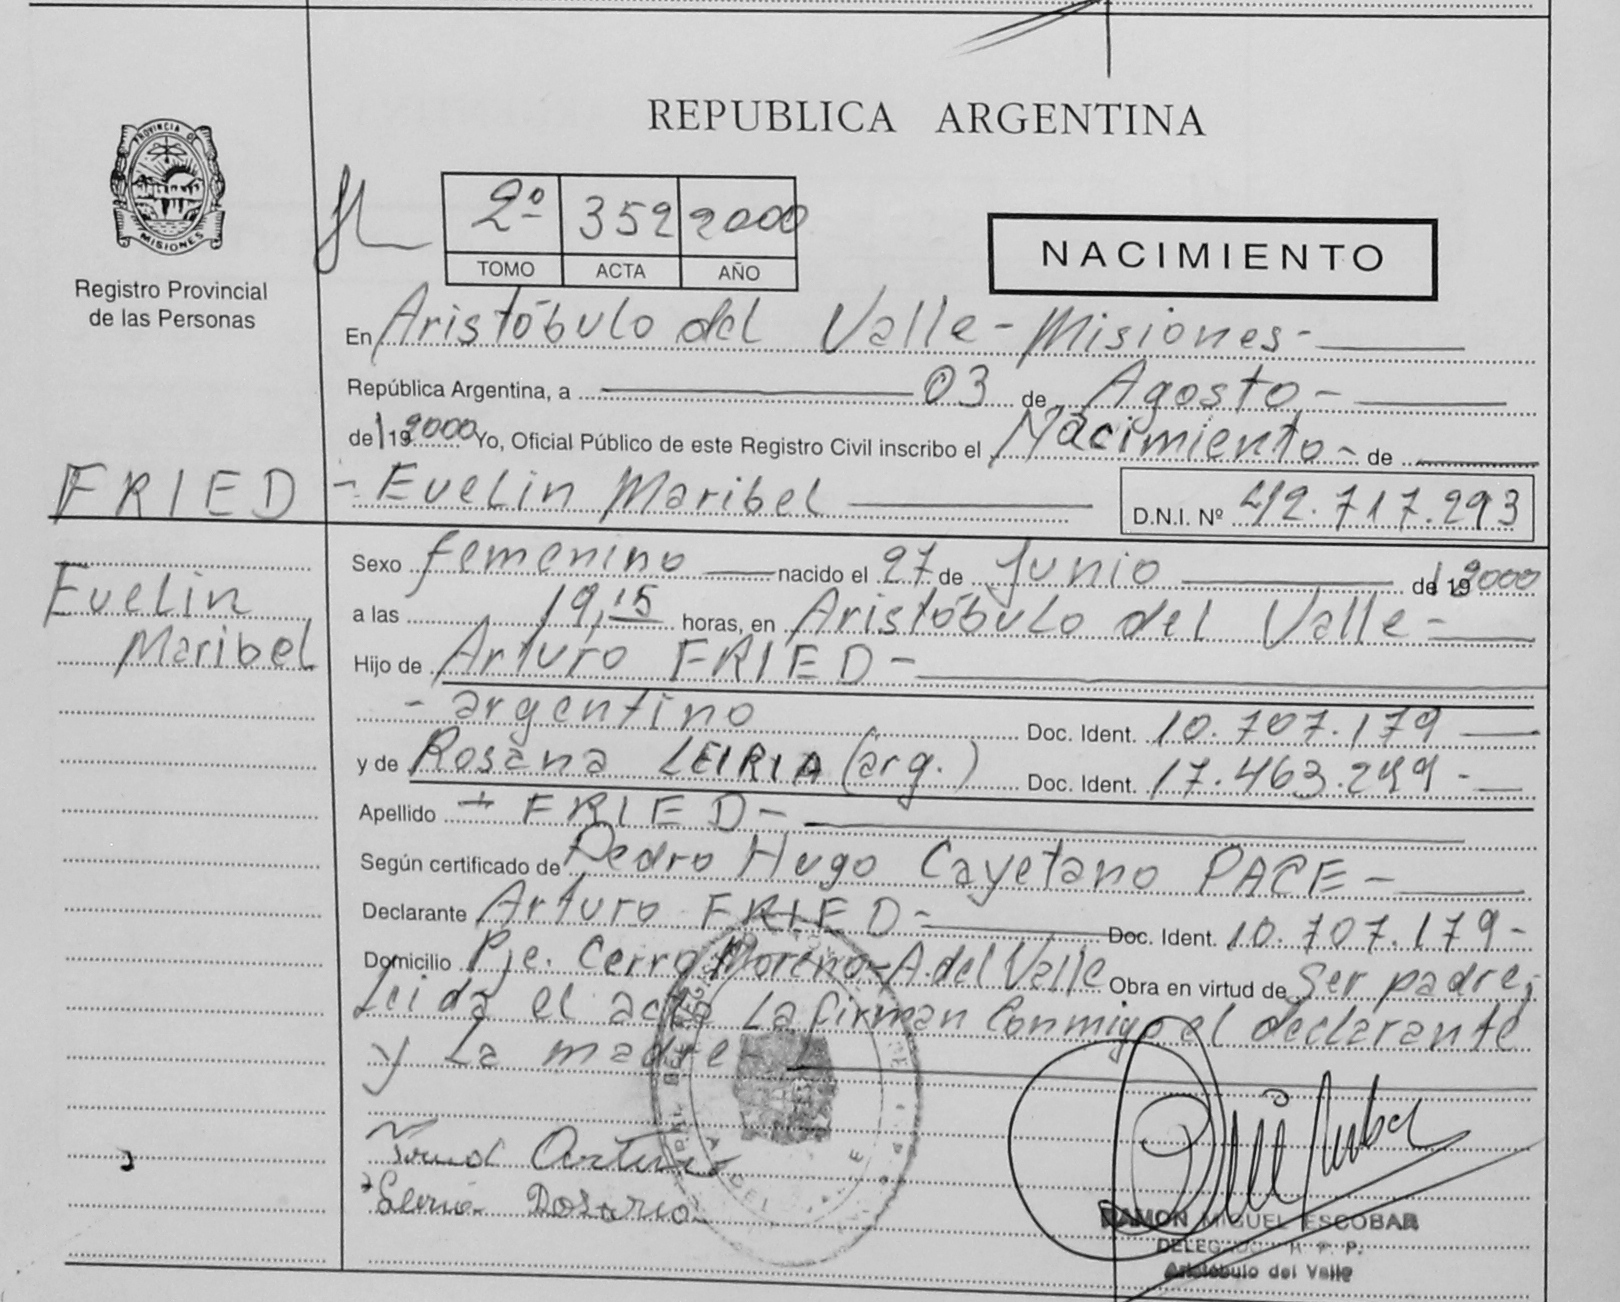 REPUBLICA ARGENTINA
PROVINCIA DE
MISIONES
Registro Provincial
de las Personas
2º 352 2000
TOMO ACTA AÑO
NACIMIENTO
En Aristóbulo del Valle - Misiones -
República Argentina, a 03 de Agosto -
de 19 2000 Yo, Oficial Público de este Registro Civil inscribo el Nacimiento - de
FRIED - Evelin Maribel D.N.I. Nº 42.717.293
Evelin
Maribel
Sexo femenino nacido el 27 de Junio de 19 2000
a las 19,15 horas, en Aristóbulo del Valle -
Hijo de Arturo FRIED -
- argentino Doc. Ident. 10.707.179
y de Rosana LEIRIA (arg.) Doc. Ident. 17.463.299 -
Apellido FRIED -
Según certificado de Pedro Hugo Cayetano PACE -
Declarante Arturo FRIED - Doc. Ident. 10.707.179 -
Domicilio Pje. Cerro Moreno - A. del Valle Obra en virtud de Ser padre;
Leida el acta La firman Conmigo el declarante
y La madre -
Arturo
RAMON MIGUEL ESCOBAR
DELEGADO R. P. P.
Aristóbulo del Valle